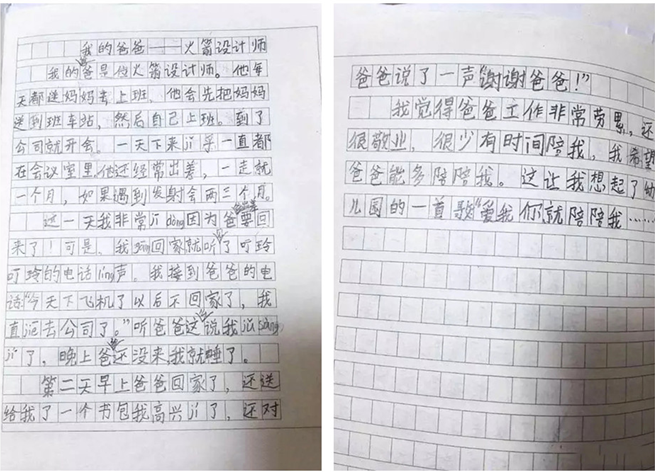 我的爸爸——火箭设计师
我的爸是位火箭设计师。他每
天都送妈妈去上班，他会先把妈妈
送到班车站，然后自己上班。到了
公司就开会。一天下来jī乎一直都
在会议室里他还经常出差，一走就
一个月，如果遇到发射会两三个月。
这一天我非常jī dòng因为爸要回
来了！可是，我gāng回家就听了叮玲
叮玲的电话líng声。我接到爸爸的电
话“今天下飞机了以后不回家了，我
直jiē去公司了。”听爸爸这说我
jí了，晚上爸还没来我就睡了。
第二天早上爸爸回家了，还送
给我了一个书包我高兴jí了，还对
爸爸说了一声“谢谢爸爸！”
我觉得爸爸工作非常劳累，还
很敬业，很少有时间陪我，我希望
爸爸能多陪陪我。这让我想起了幼
儿园的一首歌“爱我你就陪陪我……